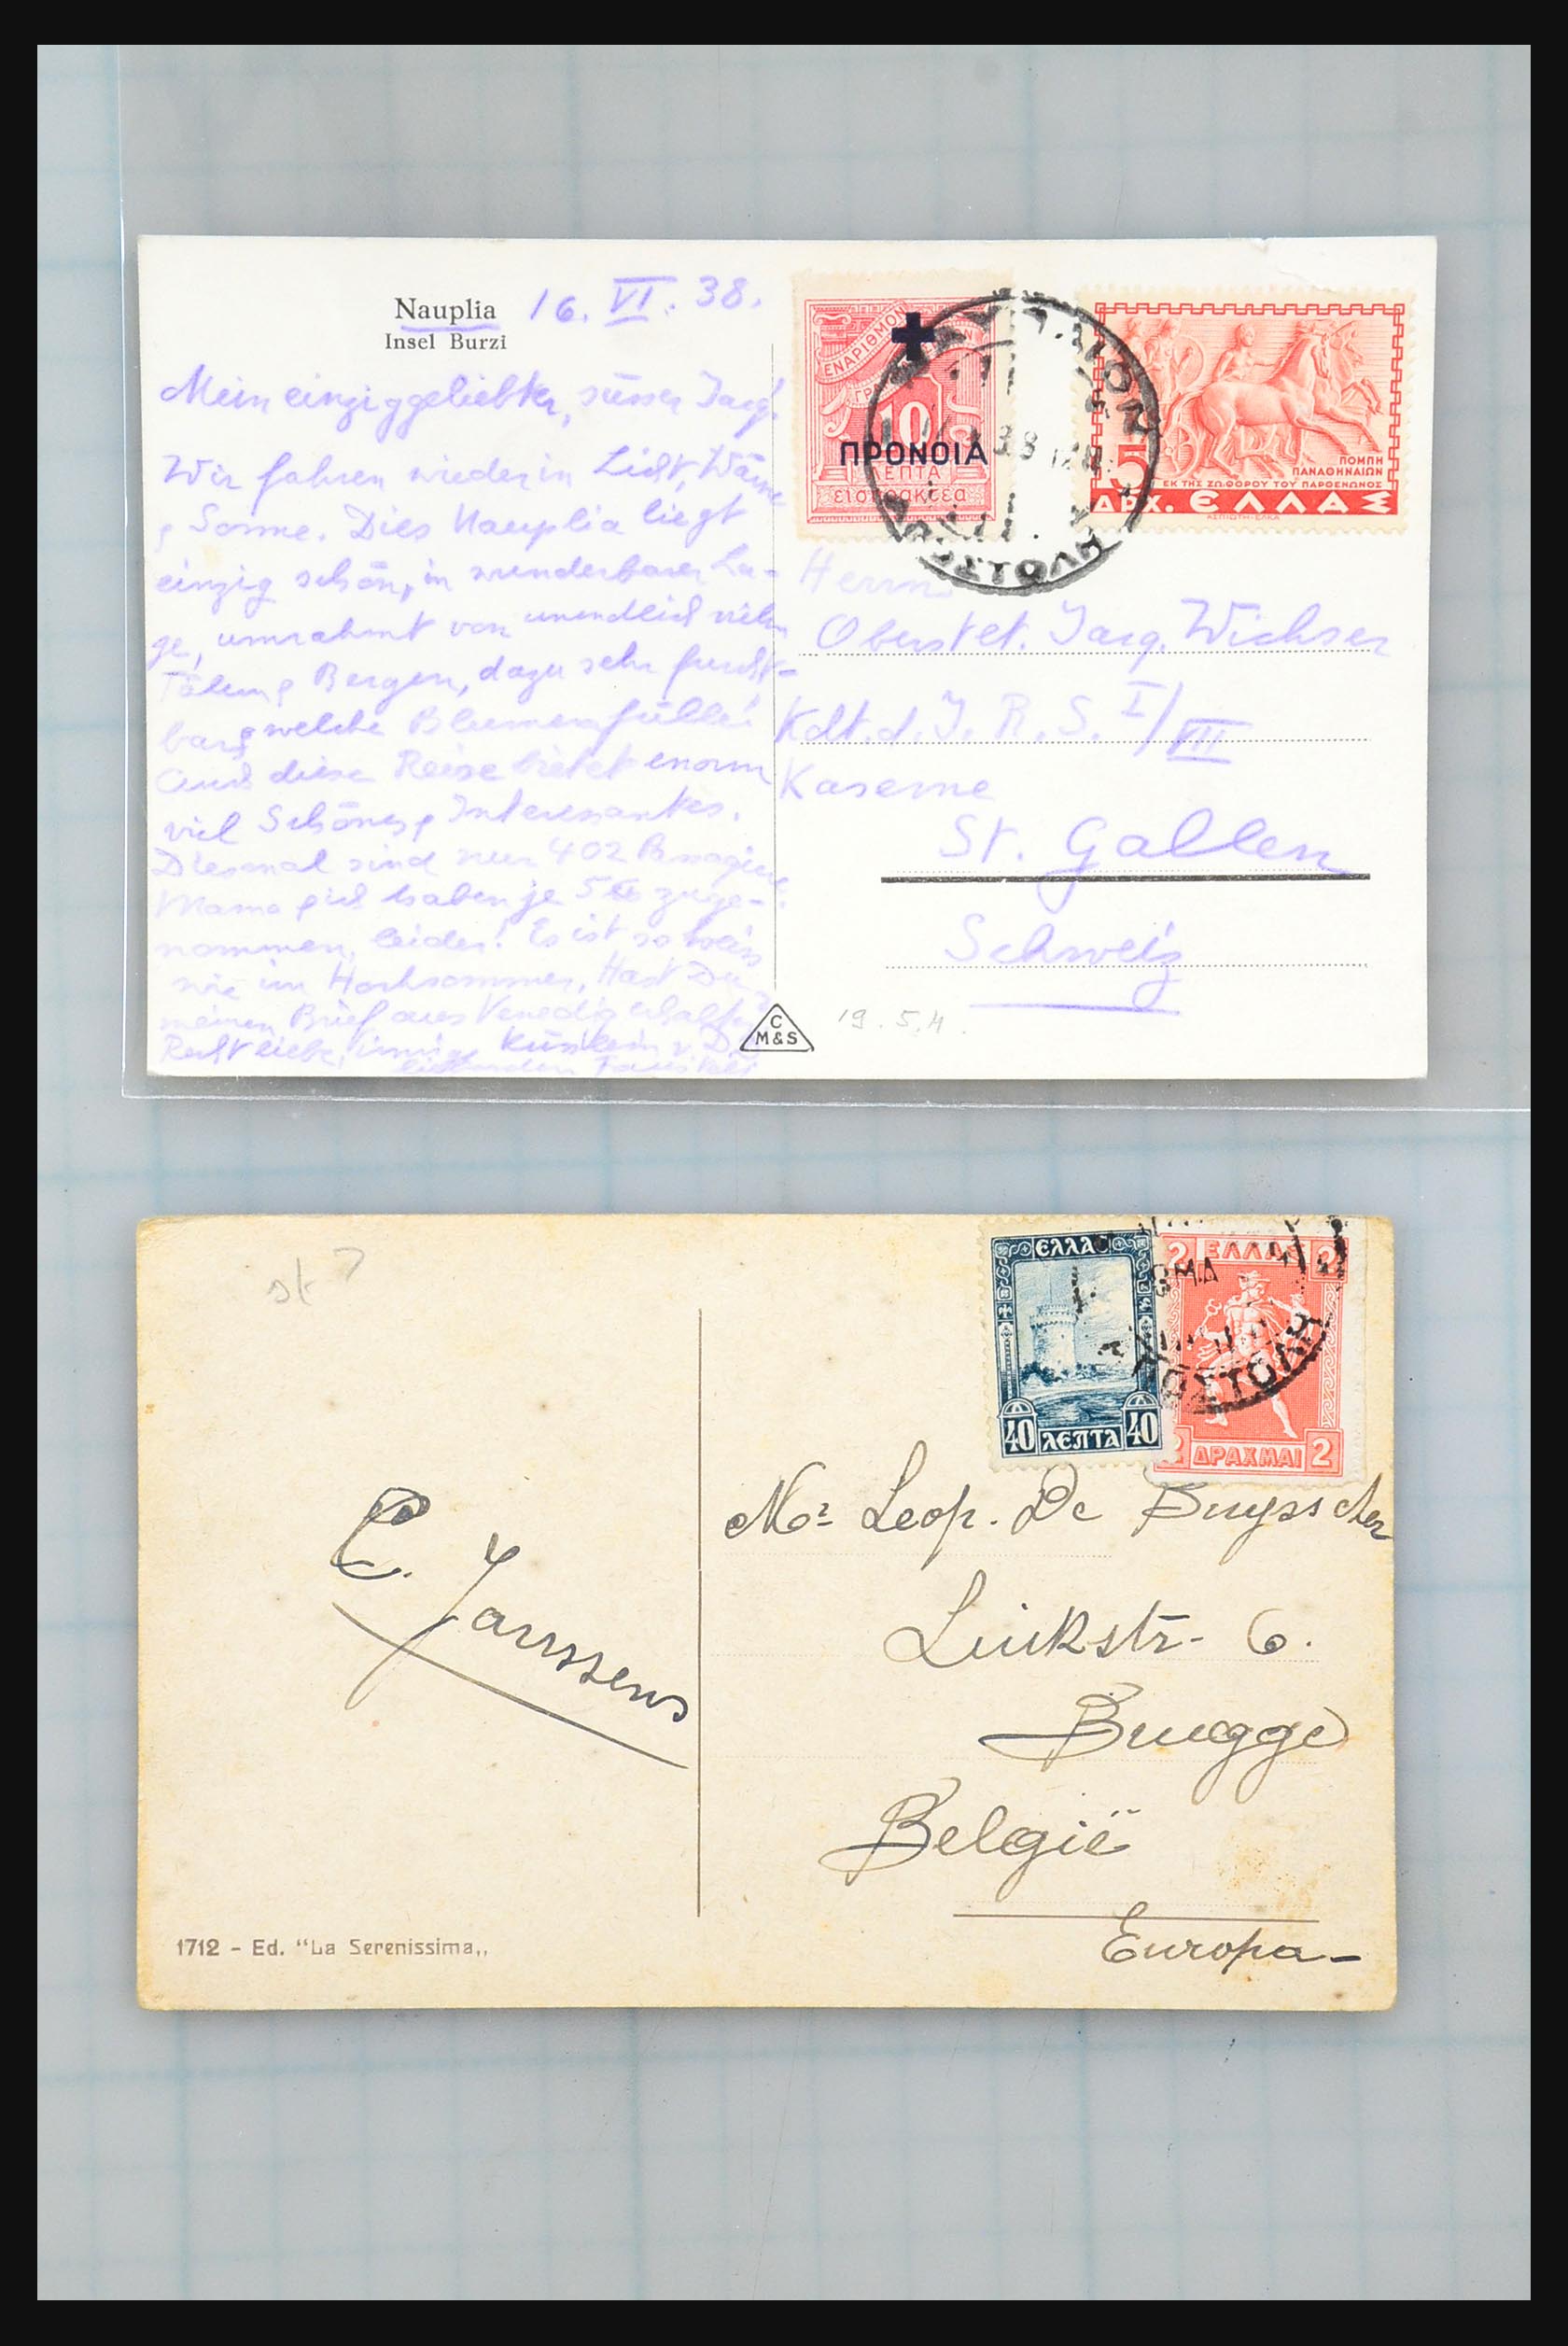 Nauplia 16. VI. 38.
Insel Burzi
Mein einziggeliebter, süsser Jarg!
Wir fahren wieder in Licht, Wärme
& Sonne. Dies Nauplia liegt
einzig schön, in wunderbarer La-
ge, umrahmt von unendlich vielen
Tälern & Bergen, dazu sehr frucht-
bar & welche Blumenfülle!
Auch diese Reise bietet enorm
viel Schönes & Interessantes.
Diesmal sind nur 402 Passagiere
Mama & ich haben je 5 zuge-
nommen, leider! Es ist so heiss
wie im Hochsommer, Hast Du
meinen Brief aus Venedig erhalten
Recht liebe, innige v. D.
liebenden
ΕΝΑΡΙΘΜΟΝ
10
ΠΡΟΝΟΙΑ
ΛΕΠΤΑ
εισπρακτέα
38
ΠΟΜΠΗ
ΠΑΝΑΘΗΝΑΙΩΝ
ΕΚ ΤΗΣ ΖΩΦΟΡΟΥ ΤΟΥ ΠΑΡΘΕΝΩΝΟΣ
5
ΔΡΧ. ΕΛΛΑΣ
ΑΣΠΙΩΤΗ-ΕΛΚΑ
Herrn
Oberstlt. Jarg. Wichser
Kdt. d. J. R. S. I/VIII
Kaserne
St. Gallen
Schweiz
C
M&S
19.5.4.
st 7
ΕΛΛΑΣ
40 ΛΕΠΤΑ 40
2 ΕΛΛΑΣ 2
2 ΔΡΑΧΜΑΙ 2
ΑΠΟΣΤΟΛΗ
C. Janssens
Mr Leop. De Buysscher
Linkstr- 6.
Brugge
België
Europa-
1712 - Ed. "La Serenissima,,